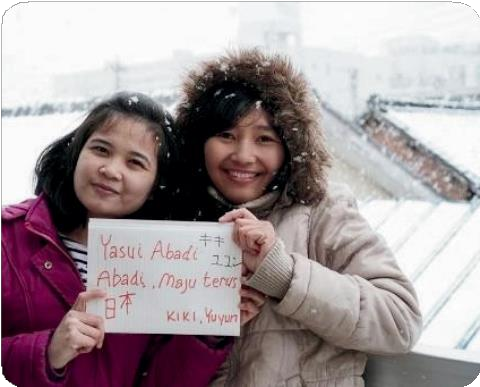 Yasui Abadi キキ
ユユン
Abadi, Maju terus
日本
KIKI, Yuyun